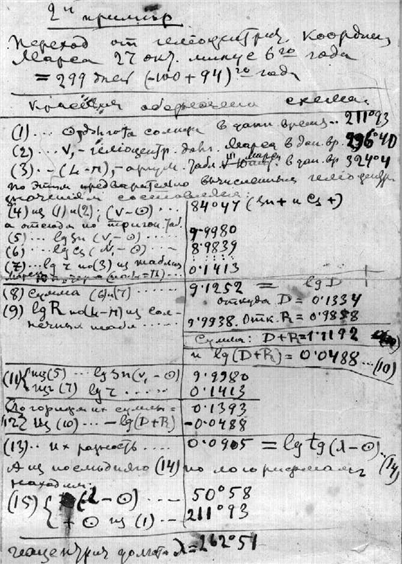 2й примѣр
Переход от гелиоцентрич. координ.
Марса 27 окт. минус 6го года
= 299 дней (-100 + 94)го года
схема
(1) ... долгота солнца в дан. время .. 211°93
(2) ... V, - гелиоцентр. долг. Марса в дан. вр. 296°40
(3) .. - (L-π), - аргум. табл. Марса в дан. вр. 324°4
по этим предварительно вычисленным гелиоцентр.
(4) из (1) и (2): (V-⊙) 84°47 (Sn + и Cs +)
а отсюда по тригон. таб.
(5) ... lg Sn (V,-⊙) ... 9.9980
(6) ... lg Cs (V,-⊙) .. 8.9839
(7) ... lg r по (3) из таблиц 0.1413
(8) сумма (6) и (7) ... 9.1252 = lg D
откуда D = 0.1334
(9) lg R по (L-π) из солнечных табл ... 9.9938. Отк. R = 0.9858
Сумма: D+R = 1.1192
и lg(D+R) = 0.0488 ... (10)
(11) { из (5) ... lg Sn (V,-⊙) 9.9980
из (7) lg r ... 0.1413
Логорифм их суммы = 0.1393
(12) из (10) ... - lg(D+R) -0.0488
(13) .. их разность .... 0.0905 = lg tg (λ-⊙) .. (14)
А из последняго (14) по логорифмам
находим:
(15) { (λ-⊙) ... 50°58
+ ⊙ из (1) ... 211°93
геоцентрич долгота λ = 262°51